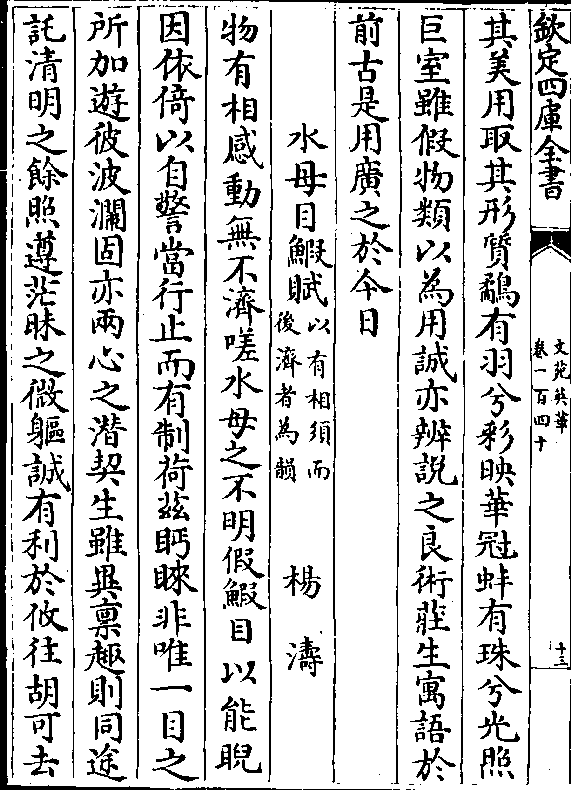 欽定四庫全書
文苑英華
卷一百四十
十三
其美用取其形質鷸有羽兮彩映華冠蚌有珠兮光照
巨室雖假物類以為用誠亦辨説之良術莊生寓語於
前古是用廣之於今日
水母目鰕賦以有相須而後濟者為韻 楊濤
物有相感動無不濟嗟水母之不明假鰕目以能睨
因依倚以自警當行止而有制荷茲眄睞非唯一目之
所加遊彼波瀾固亦兩心之潜契生雖異稟趣則同途
託清明之餘照遵茫昧之微軀誠有利於攸往胡可去